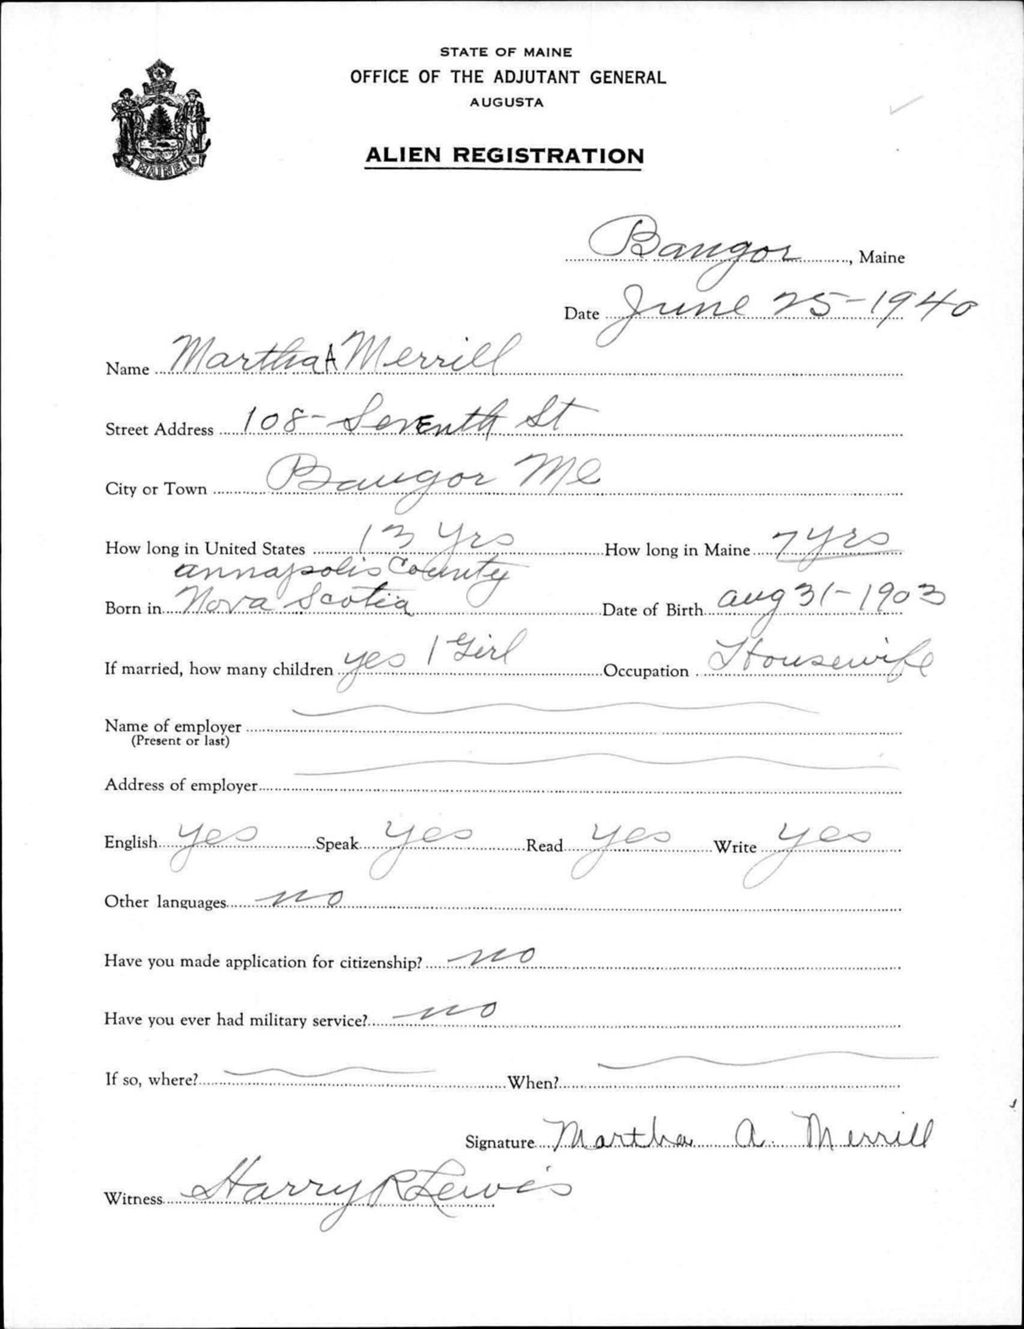 STATE OF MAINE
OFFICE OF THE ADJUTANT GENERAL
AUGUSTA
ALIEN REGISTRATION
MAINE
Bangor, Maine
Date June 25-1940
Name Martha A Merrill
Street Address 108- Seventh St
City or Town Bangor Me
How long in United States 13 Yrs How long in Maine 7 yrs
annapolis County
Born in Nova Scotia Date of Birth aug 31-1903
If married, how many children yes 1 Girl Occupation Housewife
Name of employer
(Present or last)
Address of employer
English yes Speak yes Read yes Write yes
Other languages no
Have you made application for citizenship? no
Have you ever had military service? no
If so, where? When?
Signature Martha A. Merrill
Witness Harry R Lewis